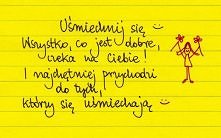 Uśmiechnij się
Wszystko, co jest dobre,
czeka na Ciebie!
I najchętniej przychodzi
do tych,
którzy się uśmiechają